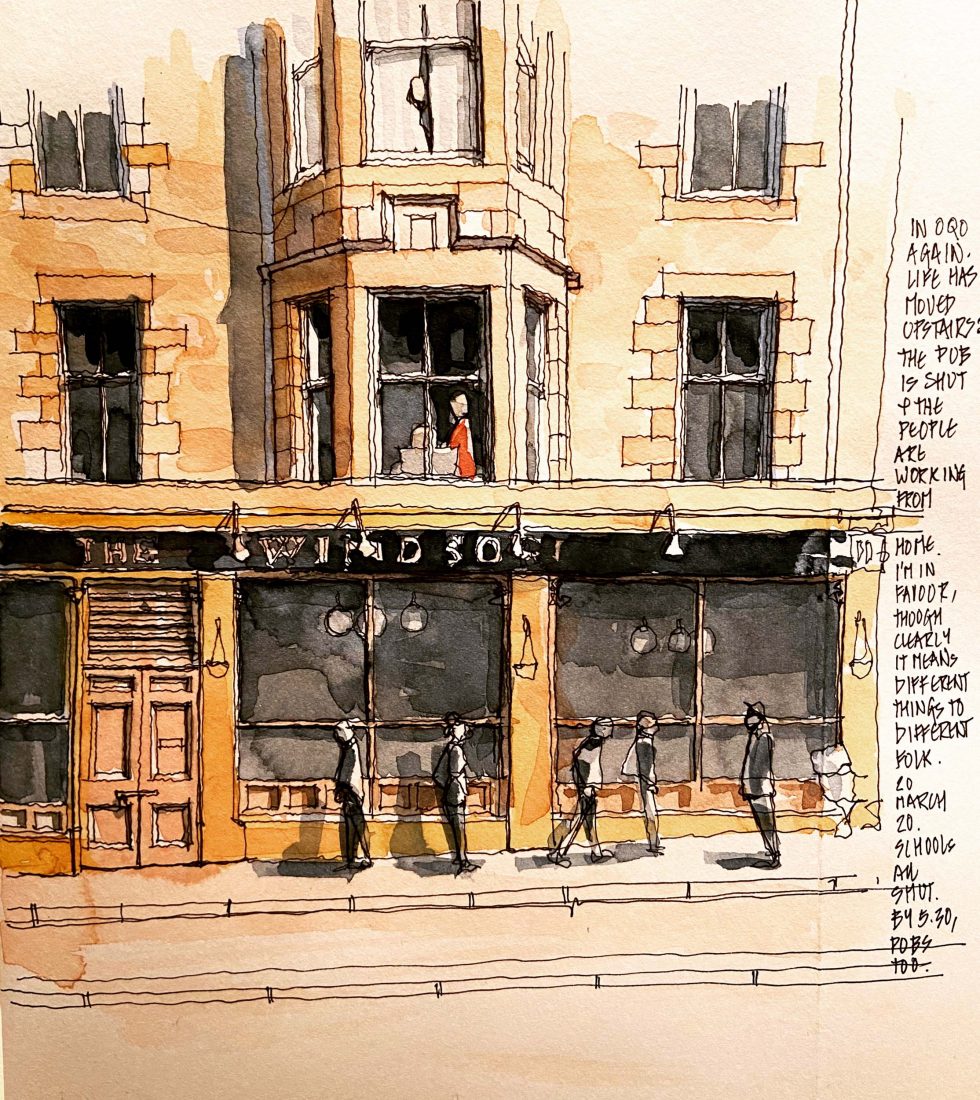 IN OQO
AGAIN.
LIFE HAS
MOVED
UPSTAIRS:
THE PUB
IS SHUT
& THE
PEOPLE
ARE
WORKING
FROM
HOME.
I'M IN
FAVOUR,
THOUGH
CLEARLY
IT MEANS
DIFFERENT
THINGS TO
DIFFERENT
FOLK.
20
MARCH
20.
SCHOOLS
ALL
SHUT.
BY 5.30,
PUBS
TOO.
THE WINDSO